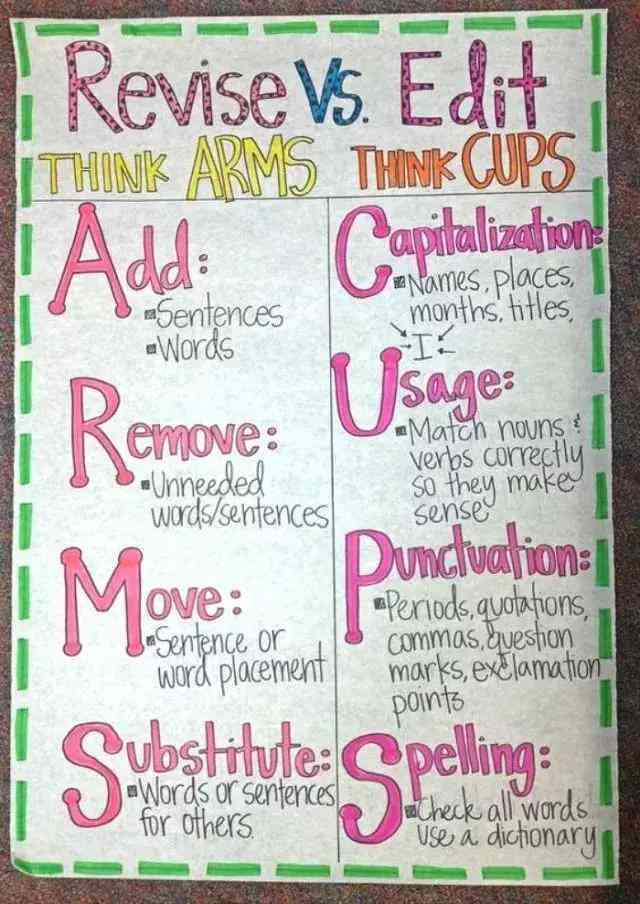 Revise Vs. Edit
THINK ARMS THINK CUPS
Add:
Sentences
Words
Remove:
Unneeded
words/sentences
Move:
Sentence or
word placement
Substitute:
Words or sentences
for others.
Capitalization:
Names, places,
months, titles,
I
Usage:
Match nouns &
verbs correctly
so they make
sense
Punctuation:
Periods, quotations,
commas, question
marks, exclamation
points
Spelling:
Check all words
use a dictionary